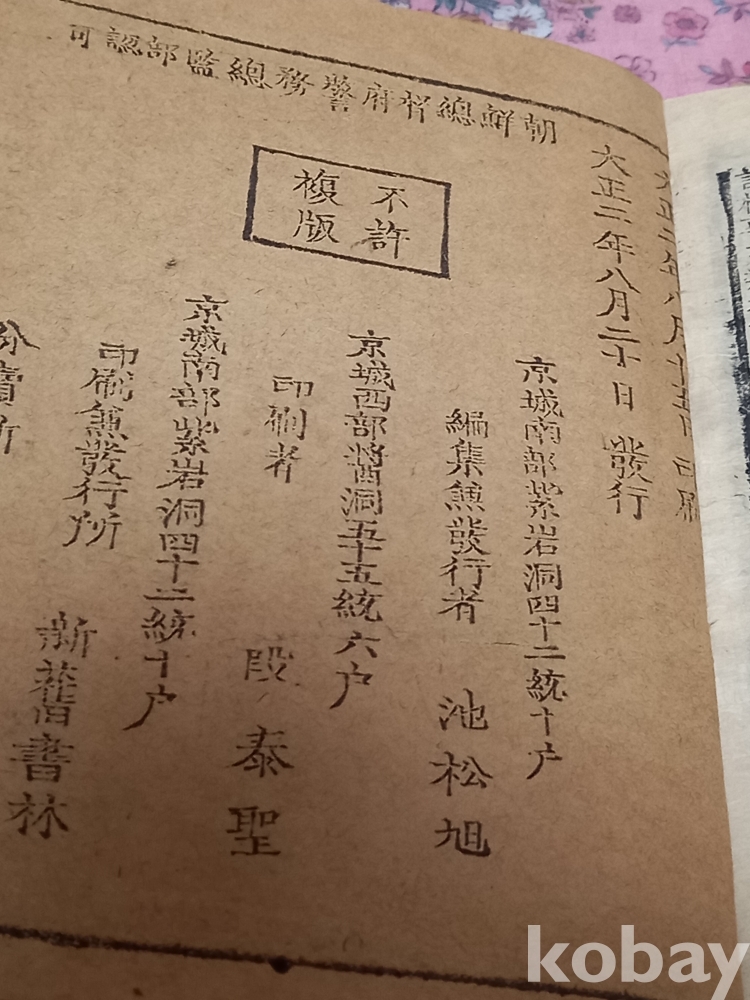 朝鮮總督府警務總監部認可
大正二年八月十五日 印刷
大正二年八月二十日 發行
不許
複版
京城南部紫岩洞四十二統十戶
編集兼發行者 池松旭
京城西部醬洞五十五統六戶
印刷者 段泰聖
京城南部紫岩洞四十二統十戶
印刷兼發行所
新舊書林
分賣所
kobay